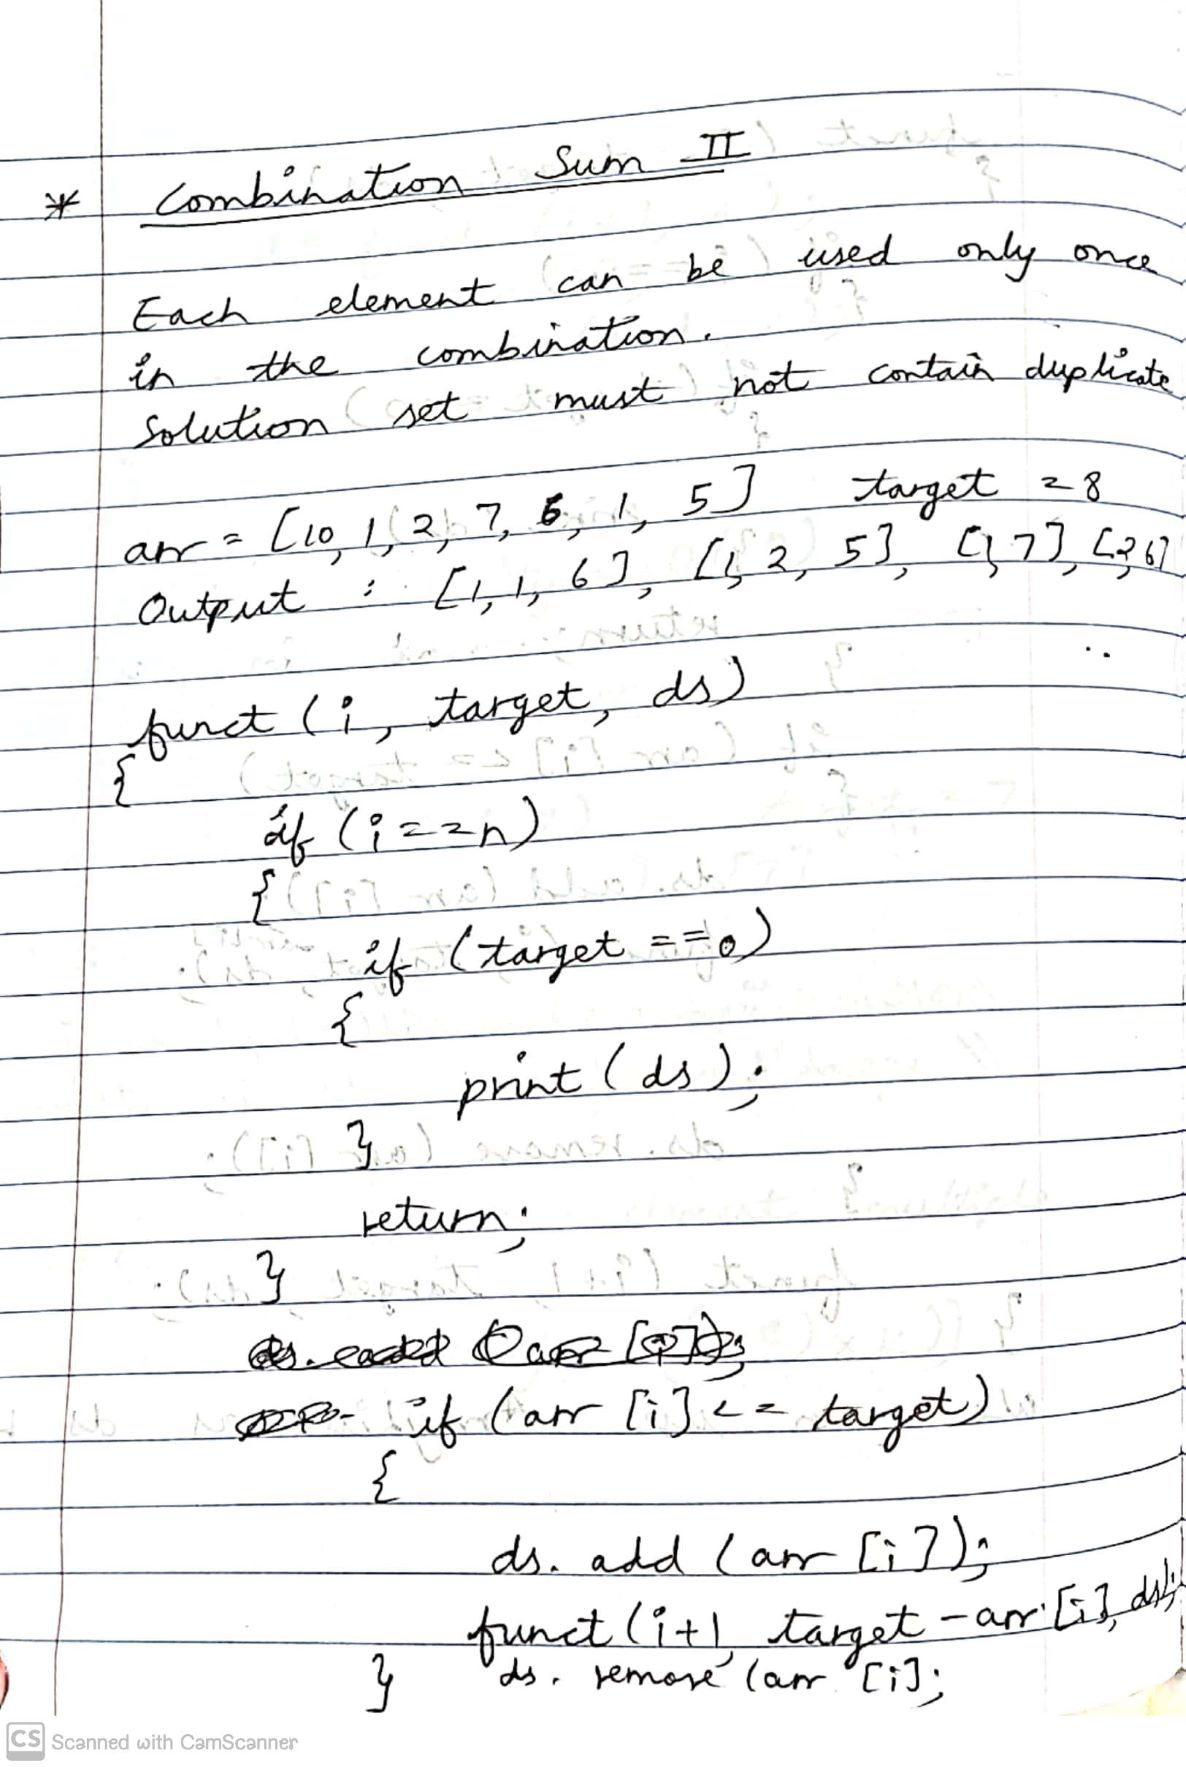 * Combination Sum II
Each element can be used only once
in the combination.
Solution set must not contain duplicate
arr = [10, 1, 2, 7, 6, 1, 5] target = 8
Output : [1, 1, 6], [1, 2, 5], [1, 7], [2, 6]
funct (i, target, ds)
{
if (i==n)
{
if (target ==0)
{
print (ds);
}
return;
}
if (arr [i] <= target)
{
ds. add (arr [i]);
funct (i+1, target - arr [i], ds);
ds. remove (arr [i];
}
CS Scanned with CamScanner